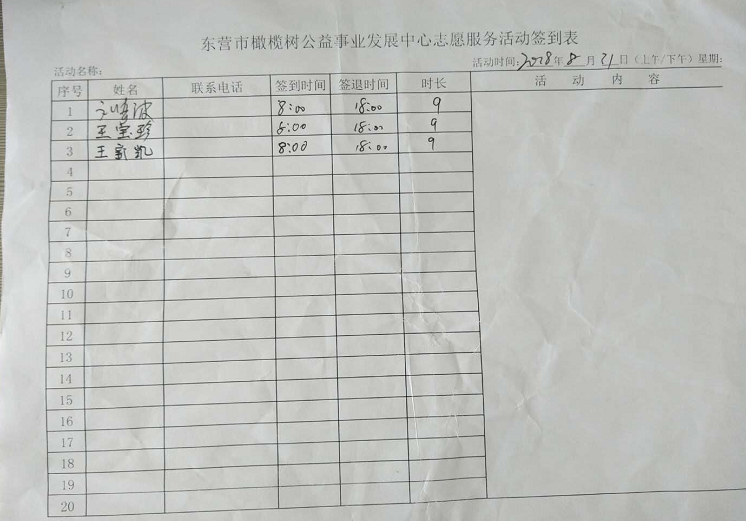 东营市橄榄树公益事业发展中心志愿服务活动签到表
活动名称: 活动时间: 2018年8月21日(上午/下午)星期:
序号 姓名 联系电话 签到时间 签退时间 时长 活动内容
1 8:00 18:00 9
2 王宝珍 8:00 18:00 9
3 王新凯 8:00 18:00 9
4
5
6
7
8
9
10
11
12
13
14
15
16
17
18
19
20